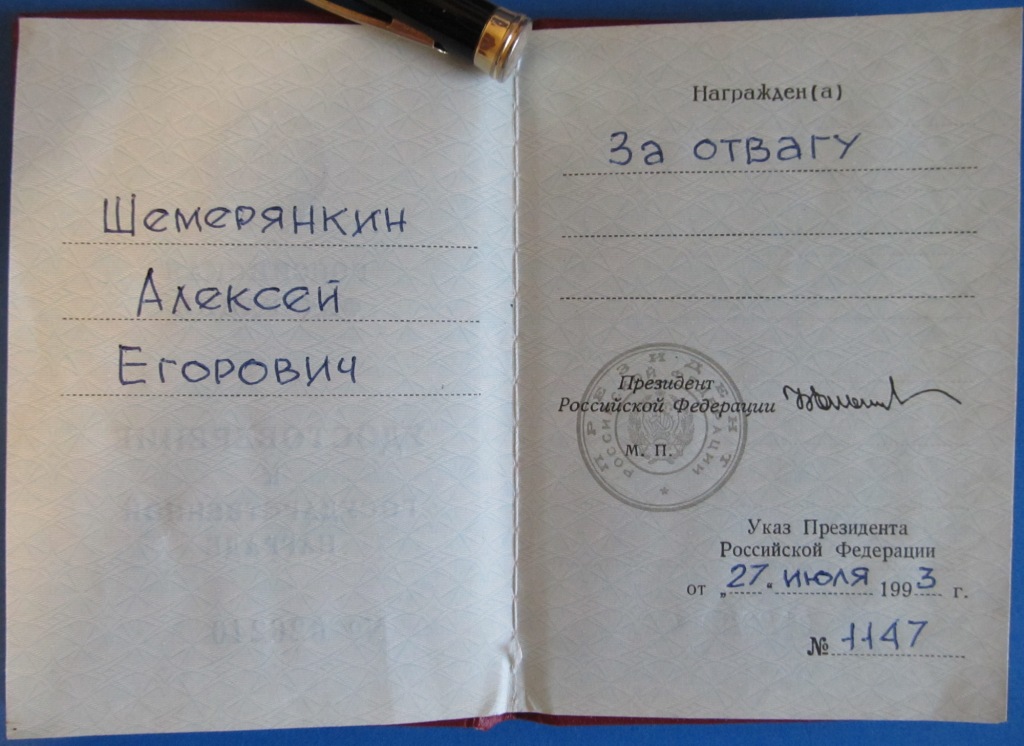 Шемерянкин
Алексей
Егорович
Награжден(а)
За отвагу
ПРЕЗИДЕНТ
РОССИЙСКОЙ ФЕДЕРАЦИИ
Президент
Российской Федерации
М. П.
Указ Президента
Российской Федерации
от „27“ июля 1993 г.
№ 1147